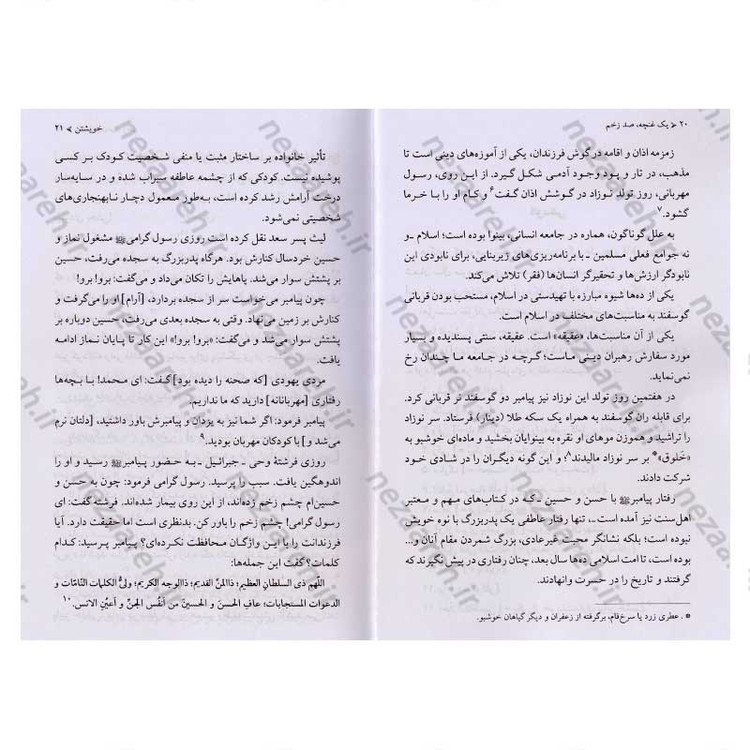 ۲۰ ⮜ یک غنچه، صد زخم
زمزمه اذان و اقامه در گوش فرزندان، یکی از آموزه‌های دینی است تا
مذهب، در تار و پود وجود آدمی شکل گیرد. از این روی، رسول
مهربانی، روز تولد نوزاد در گوشش اذان گفت۶ و کام او را با خرما
گشود.۷
به علل گوناگون، همواره در جامعه انسانی، بینوا بوده است؛ اسلام ـ و
نه جوامع فعلی مسلمین ـ با برنامه‌ریزی‌های زیربنایی، برای نابودی این
نابودگر ارزش‌ها و تحقیرگر انسان‌ها (فقر) تلاش می‌کند.
یکی از ده‌ها شیوه مبارزه با تهیدستی در اسلام، مستحب بودن قربانی
گوسفند به مناسبت‌های مختلف در اسلام است.
یکی از آن مناسبت‌ها، «عقیقه» است. عقیقه، سنتی پسندیده و بسیار
مورد سفارش رهبران دینی ماست؛ گرچه در جامعه ما چندان رخ
نمی‌نماید.
در هفتمین روز تولد این نوزاد نیز پیامبر دو گوسفند نر قربانی کرد.
برای قابله ران گوسفند به همراه یک سکه طلا (دینار) فرستاد. سر نوزاد
را تراشید و هموزن موهای او نقره به بینوایان بخشید و ماده‌ای خوشبو به
«خَلوق»* بر سر نوزاد مالیدند۸؛ و این گونه دیگران را در شادی خود
شرکت دادند.
رفتار پیامبرﷺ با حسن و حسین ـ که در کتاب‌های مهم و معتبر
اهل‌سنت نیز آمده است ـ، تنها رفتار عاطفی یک پدربزرگ با نوه خویش
نبوده است؛ بلکه نشانگر محبت غیرعادی، بزرگ شمردن مقام آنان و...
بوده است، تا امت اسلامی ده‌ها سال بعد، چنان رفتاری در پیش نگیرند که
گرفتند و تاریخ را در حسرت وانهادند.
* . عطری زرد یا سرخ‌فام، برگرفته از زعفران و دیگر گیاهان خوشبو.
خویشتن ⮞ ۲۱
تأثیر خانواده بر ساختار مثبت یا منفی شخصیت کودک بر کسی
پوشیده نیست. کودکی که از چشمه عاطفه سیراب شده و در سایه‌سار
درخت آرامش رشد کرده است، به‌طور معمول دچار نابهنجاری‌های
شخصیتی نمی‌شود.
لیث پسر سعد نقل کرده است روزی رسول گرامیﷺ مشغول نماز و
حسین خردسال کنارش بود. هرگاه پدربزرگ به سجده می‌رفت، حسین
بر پشتش سوار می‌شد. پاهایش را تکان می‌داد و می‌گفت: برو! برو!
چون پیامبر می‌خواست سر از سجده بردارد، [آرام] او را می‌گرفت و
کنارش بر زمین می‌نهاد. وقتی به سجده بعدی می‌رفت، حسین دوباره بر
پشتش سوار می‌شد و می‌گفت: «برو! برو!» این کار تا پایان نماز ادامه
یافت.
مردی یهودی [که صحنه را دیده بود] گفت: ای محمد! با بچه‌ها
رفتاری [مهربانانه] دارید که ما نداریم.
پیامبر فرمود: اگر شما نیز به یزدان و پیامبرش باور داشتید، [دلتان نرم
می‌شد و] با کودکان مهربان بودید.۹
روزی فرشتهٔ وحی ـ جبرائیل ـ به حضور پیامبرﷺ رسید و او را
اندوهگین یافت. سبب را پرسید. رسول گرامی فرمود: چون به حسن و
حسین‌ام چشم زخم زده‌اند، از این روی بیمار شده‌اند. فرشته گفت: ای
رسول گرامی! چشم زخم را باور کن. بدنظری است اما حقیقت دارد. آیا
فرزندانت را با این واژگان محافظت نکرده‌ای؟ پیامبر پرسید: کدام
کلمات؟ گفت این جمله‌ها:
اللّهم ذی السلطانِ العظیم؛ ذاالمَنِّ القدیم؛ ذاالوجهِ الکریم؛ ولیُّ الکلمات التّامّات و
الدعوات المستجابات؛ عافِ الحسنَ و الحسینَ من أنفُس الجنِّ و أعیُنِ الانس.۱۰
nezaareh.ir